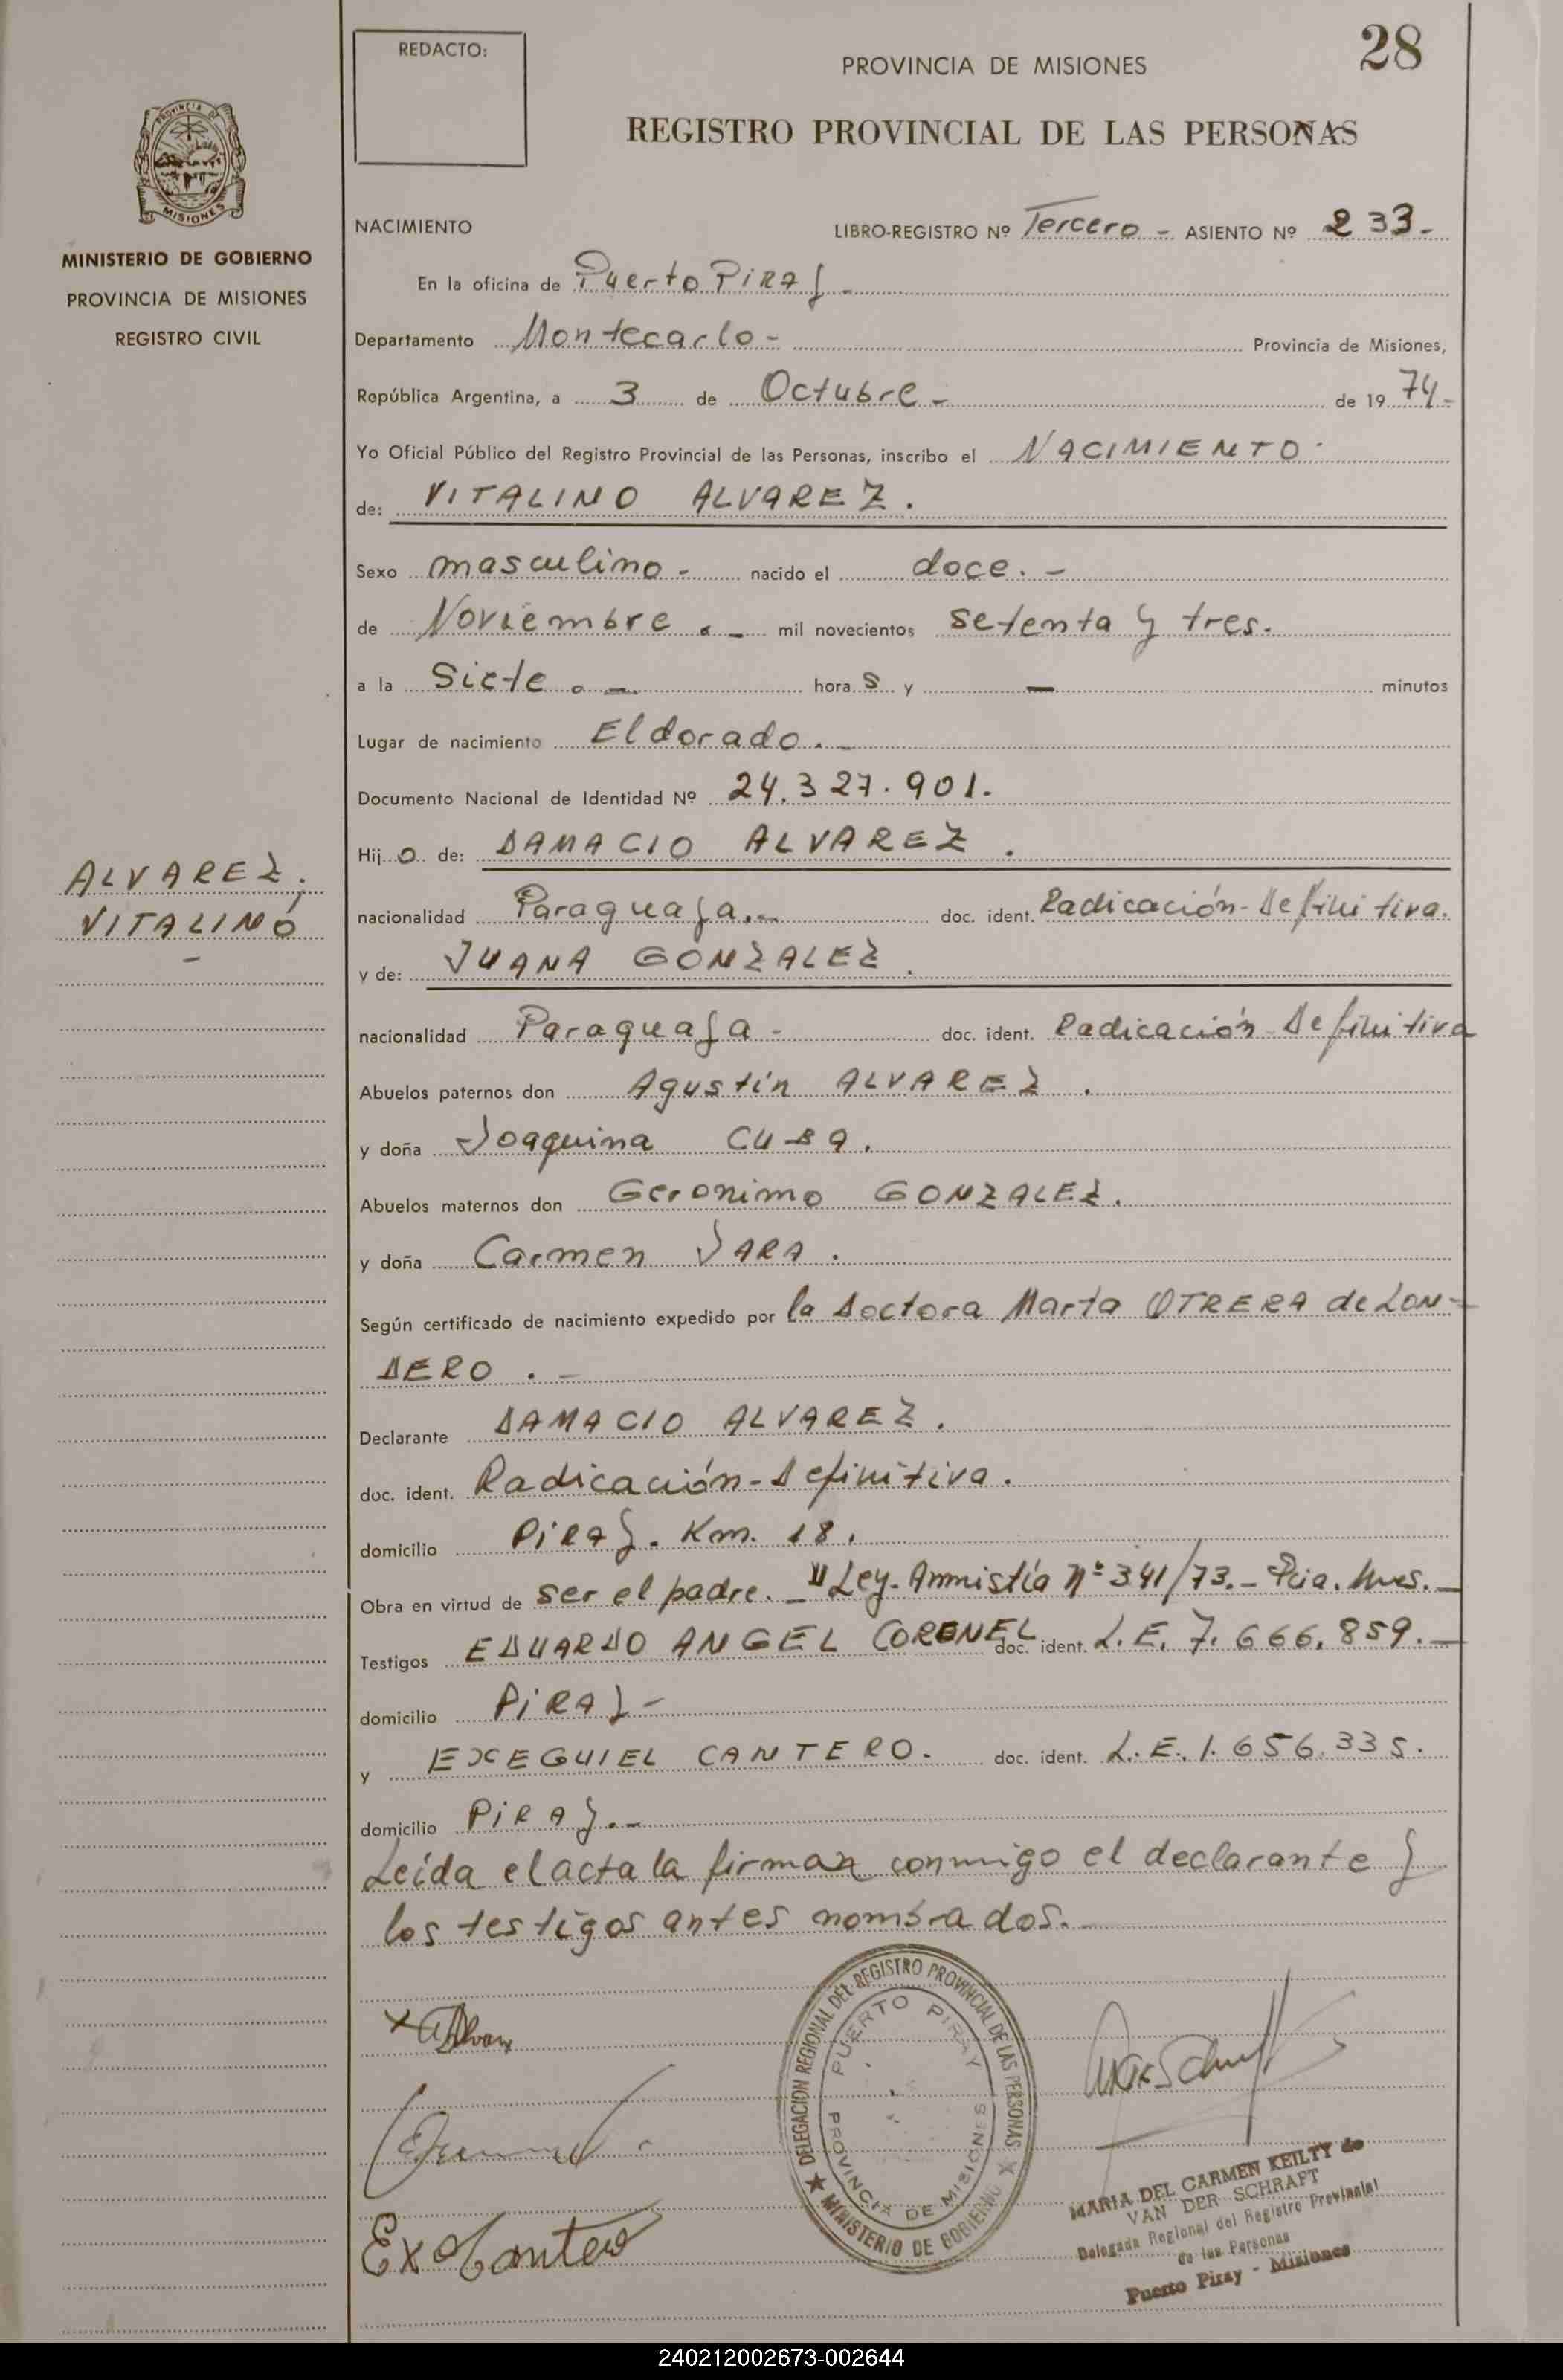 REDACTO:
PROVINCIA DE MISIONES
28
REGISTRO PROVINCIAL DE LAS PERSONAS
PROVINCIA DE
MISIONES
MINISTERIO DE GOBIERNO
PROVINCIA DE MISIONES
REGISTRO CIVIL
NACIMIENTO LIBRO-REGISTRO Nº Tercero - ASIENTO Nº 233-
En la oficina de Puerto Piray -
Departamento Montecarlo - Provincia de Misiones,
República Argentina, a 3 de Octubre - de 1974-
Yo Oficial Público del Registro Provincial de las Personas, inscribo el NACIMIENTO
de: VITALINO ALVAREZ.
Sexo masculino - nacido el doce. -
de Noviembre . - mil novecientos setenta y tres.
a la Siete . - hora s y - minutos
Lugar de nacimiento Eldorado. -
Documento Nacional de Identidad Nº 24.327.901.
Hij o de: DAMACIO ALVAREZ .
ALVAREZ,
VITALINO
-
nacionalidad Paraguaya.- doc. ident. Radicación-Definitiva.
y de: JUANA GONZALEZ .
nacionalidad Paraguaya - doc. ident. Radicación-Definitiva
Abuelos paternos don Agustín ALVAREZ .
y doña Joaquina CUBA.
Abuelos maternos don Geronimo GONZALEZ.
y doña Carmen JARA .
Según certificado de nacimiento expedido por la Doctora Marta OTRERA de LON-
DERO . -
Declarante DAMACIO ALVAREZ.
doc. ident. Radicación-Definitiva.
domicilio Piray. Km. 18.
Obra en virtud de ser el padre. - Ley-Amnistía Nº 341/73.- Pcia. Mnes. -
Testigos EDUARDO ANGEL CORONEL doc. ident. L.E. 7.666.859. -
domicilio PiRAy -
y EXEGUIEL CANTERO. doc. ident. L.E. 1.656.335.
domicilio PiRAy.-
Leída el acta la firman conmigo el declarante y
los testigos antes nombrados.
DELEGACION REGIONAL DEL REGISTRO PROVINCIAL DE LAS PERSONAS
MINISTERIO DE GOBIERNO
PUERTO PIRAY
PROVINCIA DE MISIONES
Ex Cantero
MARIA DEL CARMEN KEILTY de
VAN DER SCHRAFT
Delegada Regional del Registro Provincial
de las Personas
Puerto Piray - Misiones
240212002673-002644